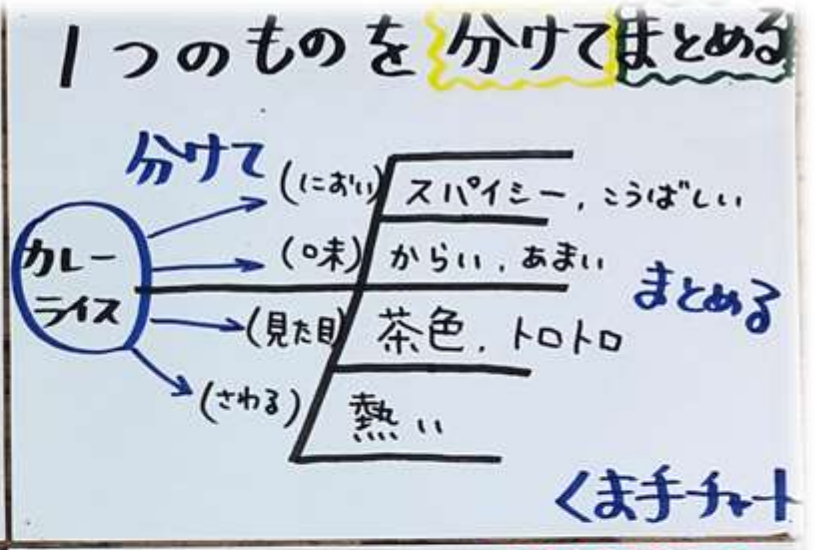 1つのものを分けてまとめる
分けて
カレー
ライス
(におい) スパイシー, こうばしい
(味) からい, あまい
(見た目) 茶色, トロトロ
(さわる) 熱い
まとめる
くま手チャート